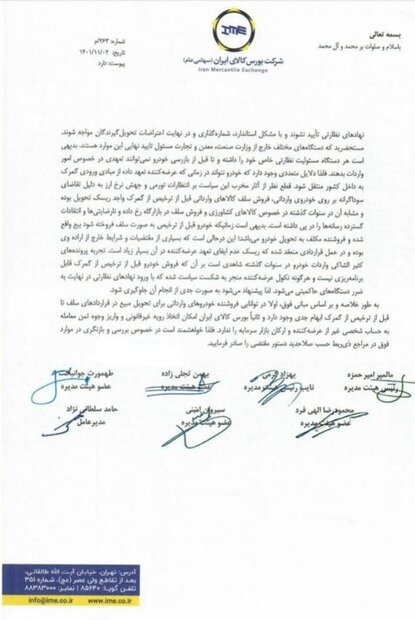 بسمه تعالی
باسلام و صلوات بر محمد و آل محمد
IME
شرکت بورس کالای ایران (سهامی عام)
Iran Mercantile Exchange
شماره: ۲۶۳/م
تاریخ: ۱۴۰۱/۱۱/۰۲
پیوست: دارد
نهادهای نظارتی تأیید نشوند و با مشکل استاندارد، شماره‌گذاری و در نهایت اعتراضات تحویل‌گیرندگان مواجه شوند.
مستحضرید که دستگاه‌های مختلف خارج از وزارت صنعت، معدن و تجارت مسئول تایید نهایی این موارد هستند. بدیهی
است هر دستگاه مسئولیت نظارتی خاص خود را داشته و تا قبل از بازرسی خودرو نمی‌توانند تعهدی در خصوص امور
واردات بدهند. فلذا دلایل متعددی وجود دارد که خودرو نتواند در زمانی که عرضه‌کننده تعهد داده از مبادی ورودی گمرک
به داخل کشور منتقل شود. قطع نظر از آثار مخرب این سیاست بر انتظارات تورمی و جهش نرخ ارز به دلیل تقاضای
سوداگرانه بر روی خودروی وارداتی، فروش سلف کالاهای وارداتی قبل از ترخیص از گمرک واجد ریسک تحویل بوده
و مشابه آن در سنوات گذشته در خصوص کالاهای کشاورزی و فروش سلف در بازارگاه رخ داده و نارضایتی‌ها و انتقادات
گسترده رسانه‌ها را در پی داشته است. بدیهی است زمانیکه خودرو قبل از ترخیص به صورت سلف فروخته شود بیع واقع
شده و فروشنده مکلف به تحویل خودرو می‌باشد؛ این درحالی است که بسیاری از مقتضیات و شرایط خارج از اراده وی
بوده و در عمل قراردادی منعقد شده که ریسک عدم ایفای تعهد عرضه‌کننده در آن بسیار زیاد است. تجربه پرونده‌های
کثیر الشاکی واردات خودرو در سنوات گذشته شاهدی است بر آن که فروش خودرو قبل از ترخیص از گمرک قابل
برنامه‌ریزی نیست و هرگونه نکول عرضه‌کننده منجر به شکست سیاست شده که با ورود نهادهای نظارتی در نهایت به
ضرر دستگاه‌های حاکمیتی می‌شود. لذا پیشنهاد می‌شود به صورت جدی از انجام آن جلوگیری شود.
به طور خلاصه و بر اساس مبانی فوق، اولا در توانایی فروشنده خودروهای وارداتی برای تحویل مبیع در قراردادهای سلف تا
قبل از ترخیص از گمرک ابهام جدی وجود دارد و ثانیاً بورس کالای ایران امکان اتخاذ رویه غیرقانونی و واریز وجوه ثمن معامله
به حساب شخصی غیر از عرضه‌کننده و ارکان بازار سرمایه را ندارد. فلذا خواهشمند است در خصوص بررسی و بازنگری در موارد
فوق در مراجع ذی‌ربط حسب صلاحدید دستور مقتضی را صادر فرمایید.
مالمیر امیر حمزه
رئیس هیئت مدیره
بهزاد کرمی
نایب رئیس هیئت مدیره
بهمن تجلی زاده
عضو هیئت مدیره
طهمورث جوانبخت
عضو هیئت مدیره
محمودرضا الهی فرد
عضو هیئت مدیره
سیروان امینی
عضو هیئت مدیره
حامد سلطانی نژاد
مدیرعامل
آدرس: تهران، خیابان آیت الله طالقانی،
بعد از تقاطع ولی عصر (عج)، شماره ۳۵۱
تلفن گویا: ۸۵۶۴۰ | نمابر: ۸۸۳۸۳۰۰۰
info@ime.co.ir www.ime.co.ir